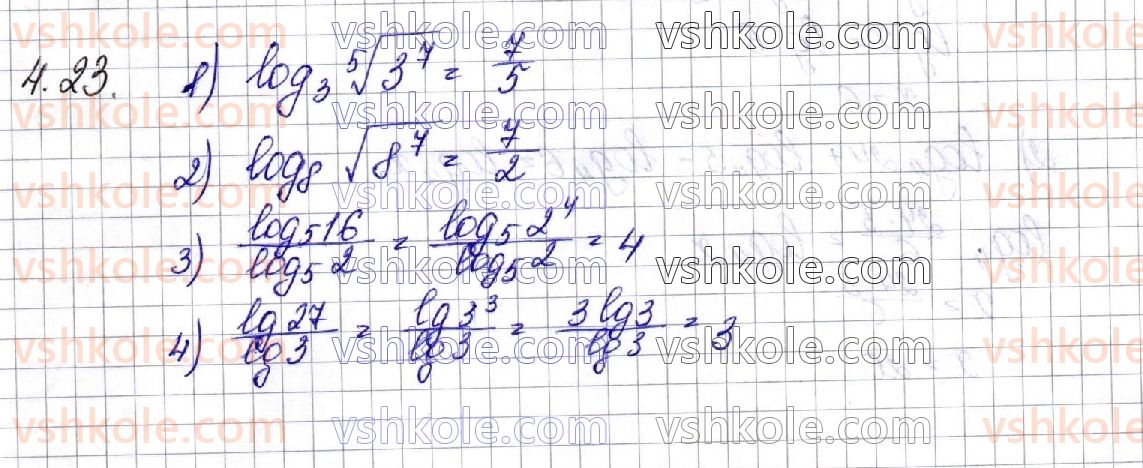 4.23. 1) log₃ ⁵√3⁷ = 7/5
2) log₈ √8⁷ = 7/2
3) log₅16/log₅2 = log₅2⁴/log₅2 = 4
4) lg27/lg3 = lg3³/lg3 = 3lg3/lg3 = 3
vshkole.com vshkole.com vshkole.com vshkole.com
vshkole.com vshkole.com vshkole.com vshkole.com
vshkole.com vshkole.com vshkole.com vshkole.com
vshkole.com vshkole.com vshkole.com vshkole.com
vshkole.com vshkole.com vshkole.com vshkole.com
vshkole.com vshkole.com vshkole.com vshkole.com